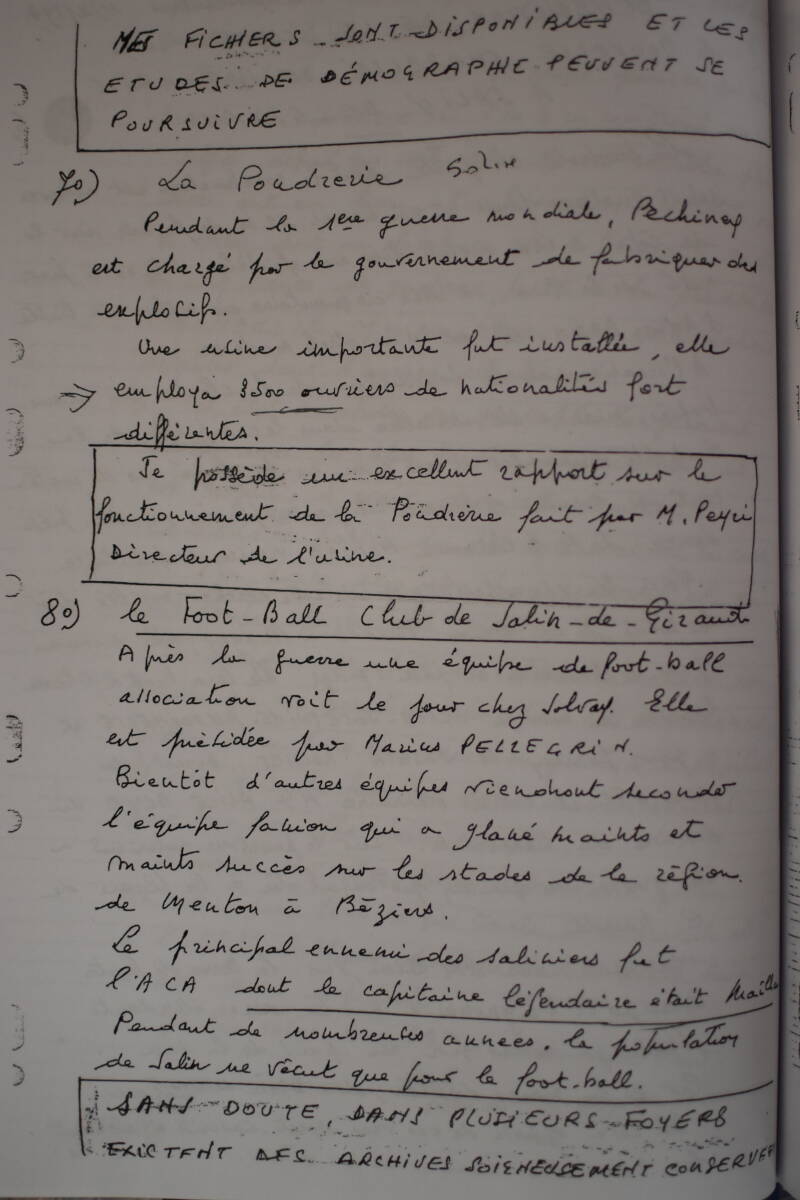 MES FICHIERS SONT DISPONIBLES ET LES
ETUDES DE DÉMOGRAPHIE PEUVENT SE
POURSUIVRE
7°) La Poudrerie Salin
Pendant la 1ere guerre mondiale, Péchiney
est chargé par le gouvernement de fabriquer des
explosifs.
Une usine importante fut installée, elle
⇒ employa 3500 ouvriers de nationalités fort
différentes.
Je possède un excellent rapport sur le
fonctionnement de la Poudrerie fait par M. Peyri
Directeur de l'usine.
8°) le Foot-Ball Club de Salin-de-Giraud
Après la guerre une équipe de foot-ball
association voit le jour chez Solvay. Elle
est présidée par Marius PELLEGRIN.
Bientôt d'autres équipes viendront seconder
l'équipe fanion qui a glané maints et
maints succès sur les stades de la région.
de Menton à Béziers.
Le principal ennemi des saliniers fut
l'ACA dont le capitaine légendaire était
Pendant de nombreuses années, la population
de Salin ne vécut que pour le foot-ball.
SANS DOUTE, DANS PLUSIEURS FOYERS
EXISTENT DES ARCHIVES SOIGNEUSEMENT CONSERVEE